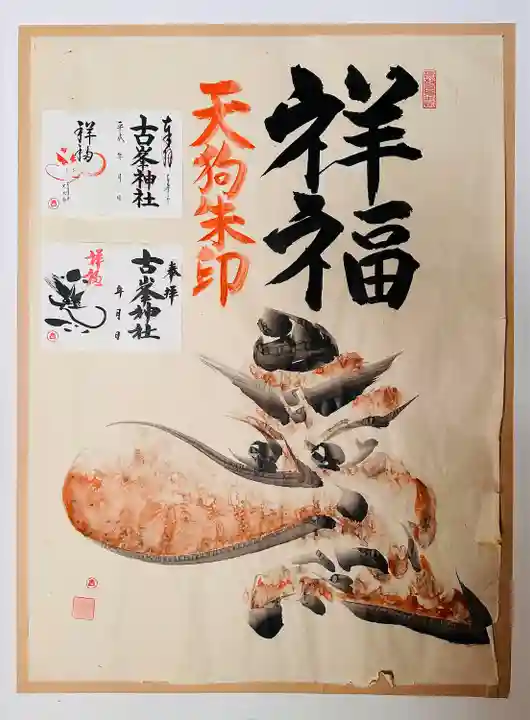 祥福
天狗朱印
奉拝
古峯神社
平成 年 月 日
祥福
奉拝
古峯神社
年 月 日
祥福